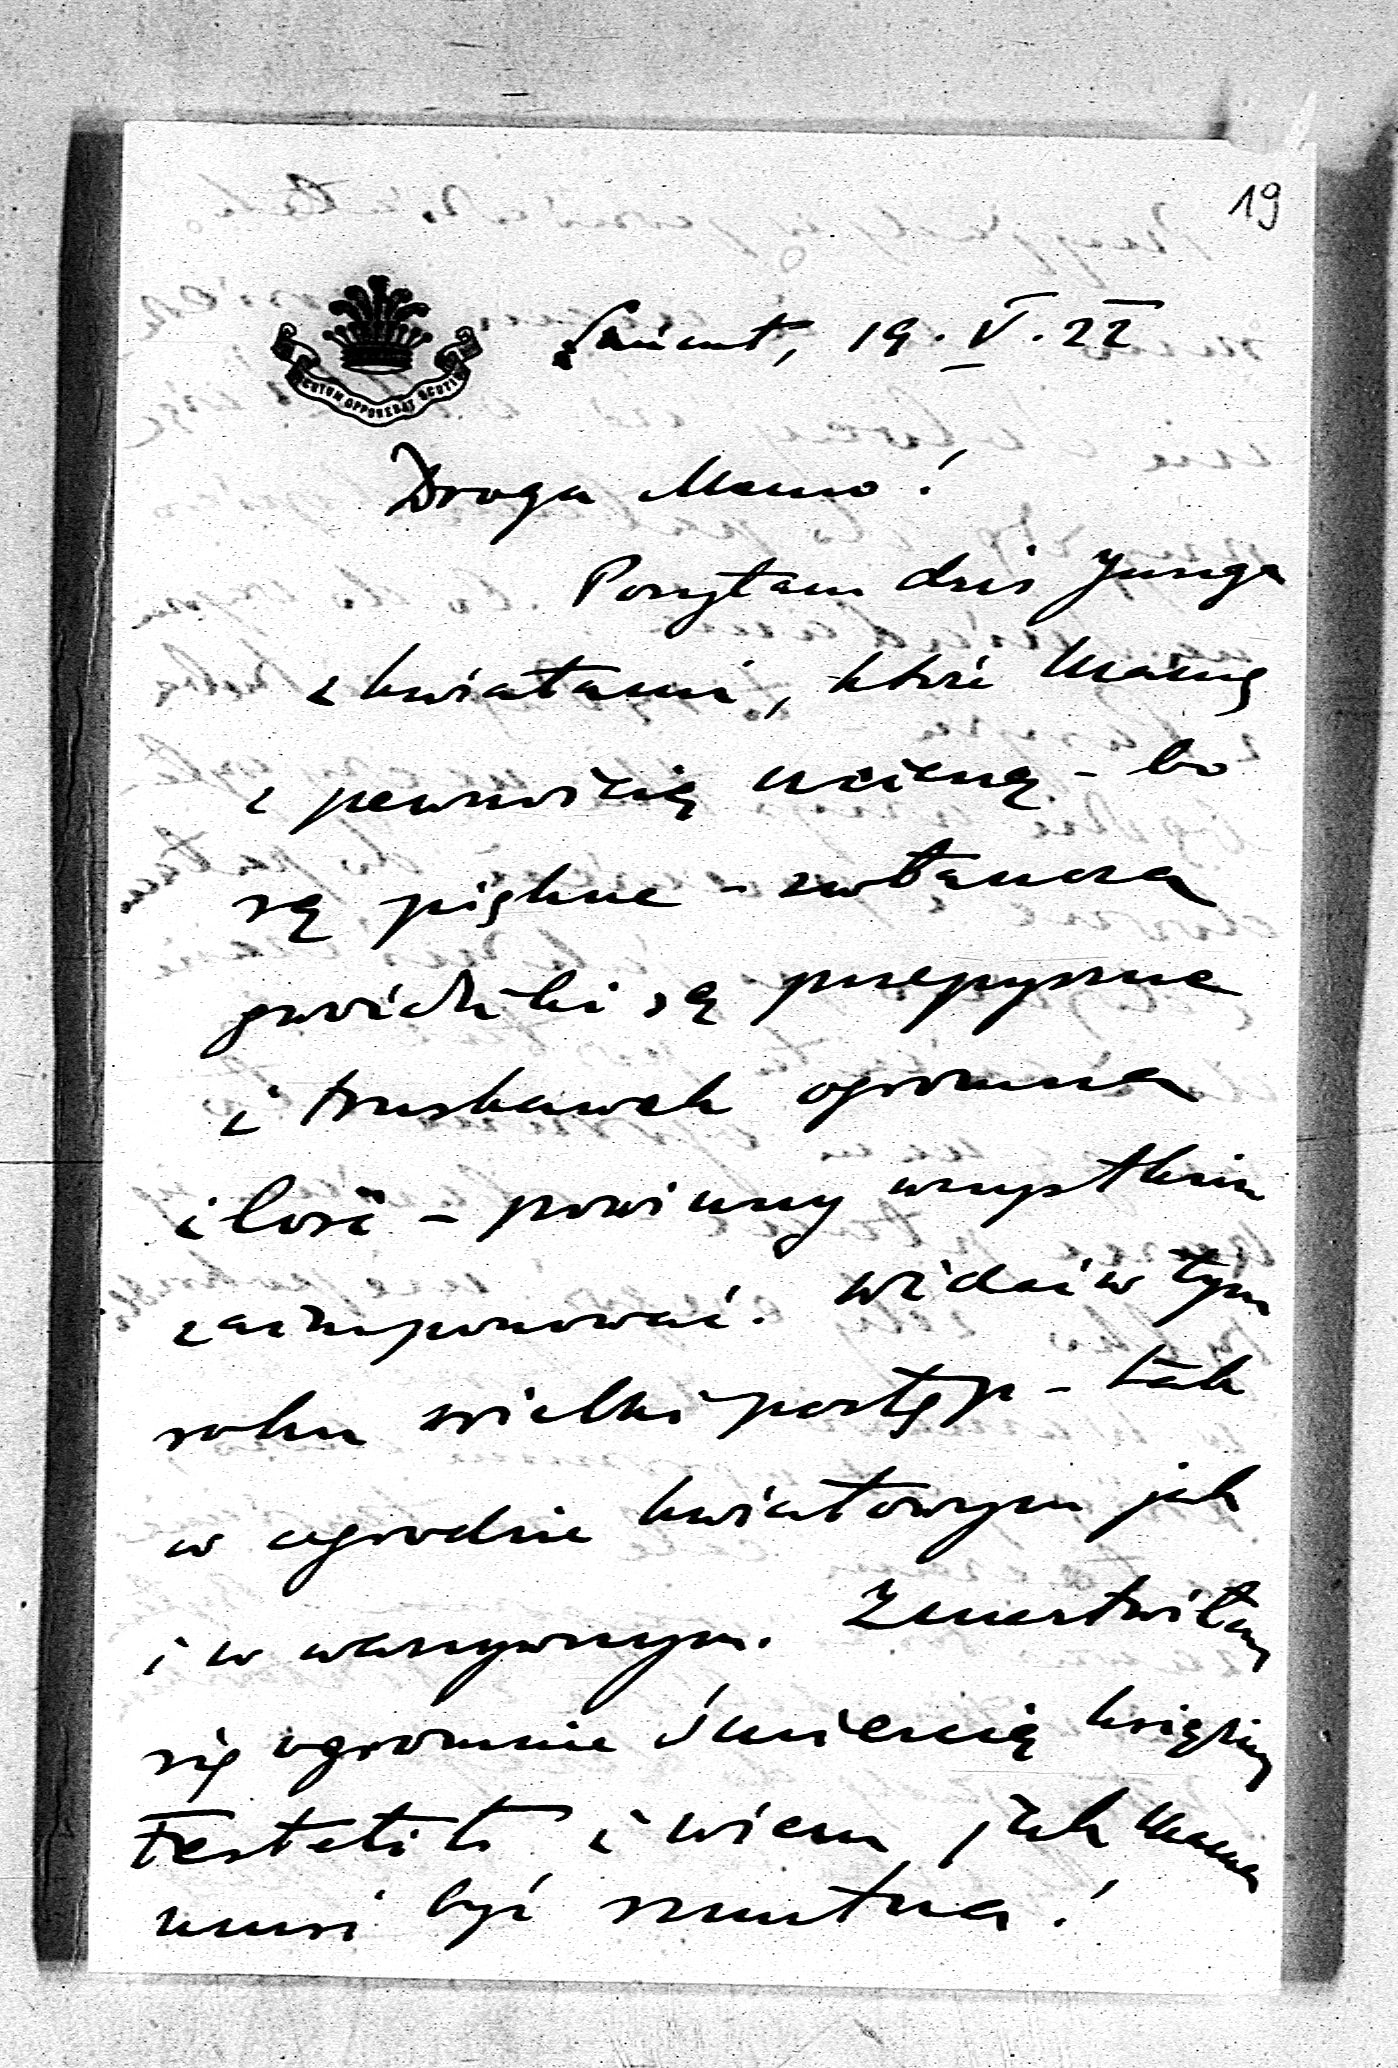 19
SCUTUM OPPONEBAT SCUTIS
Łańcut, 19.V.22
Droga Mamo!
Posyłam dziś Junga
z kwiatami, które Mamę
z pewnością ucieszą – bo
są piękne – zwłaszcza
gwoździki są przepyszne
i truskawek ogromna
ilość – powinny wszystkim
zaimponować. Widać w tym
roku wielki postęp – tak
w ogrodzie kwiatowym jak
i w warzywnym. Zmartwiłam
się ogromnie śmiercią księżny
Festetits i wiem jak Mama
musi być smutna!